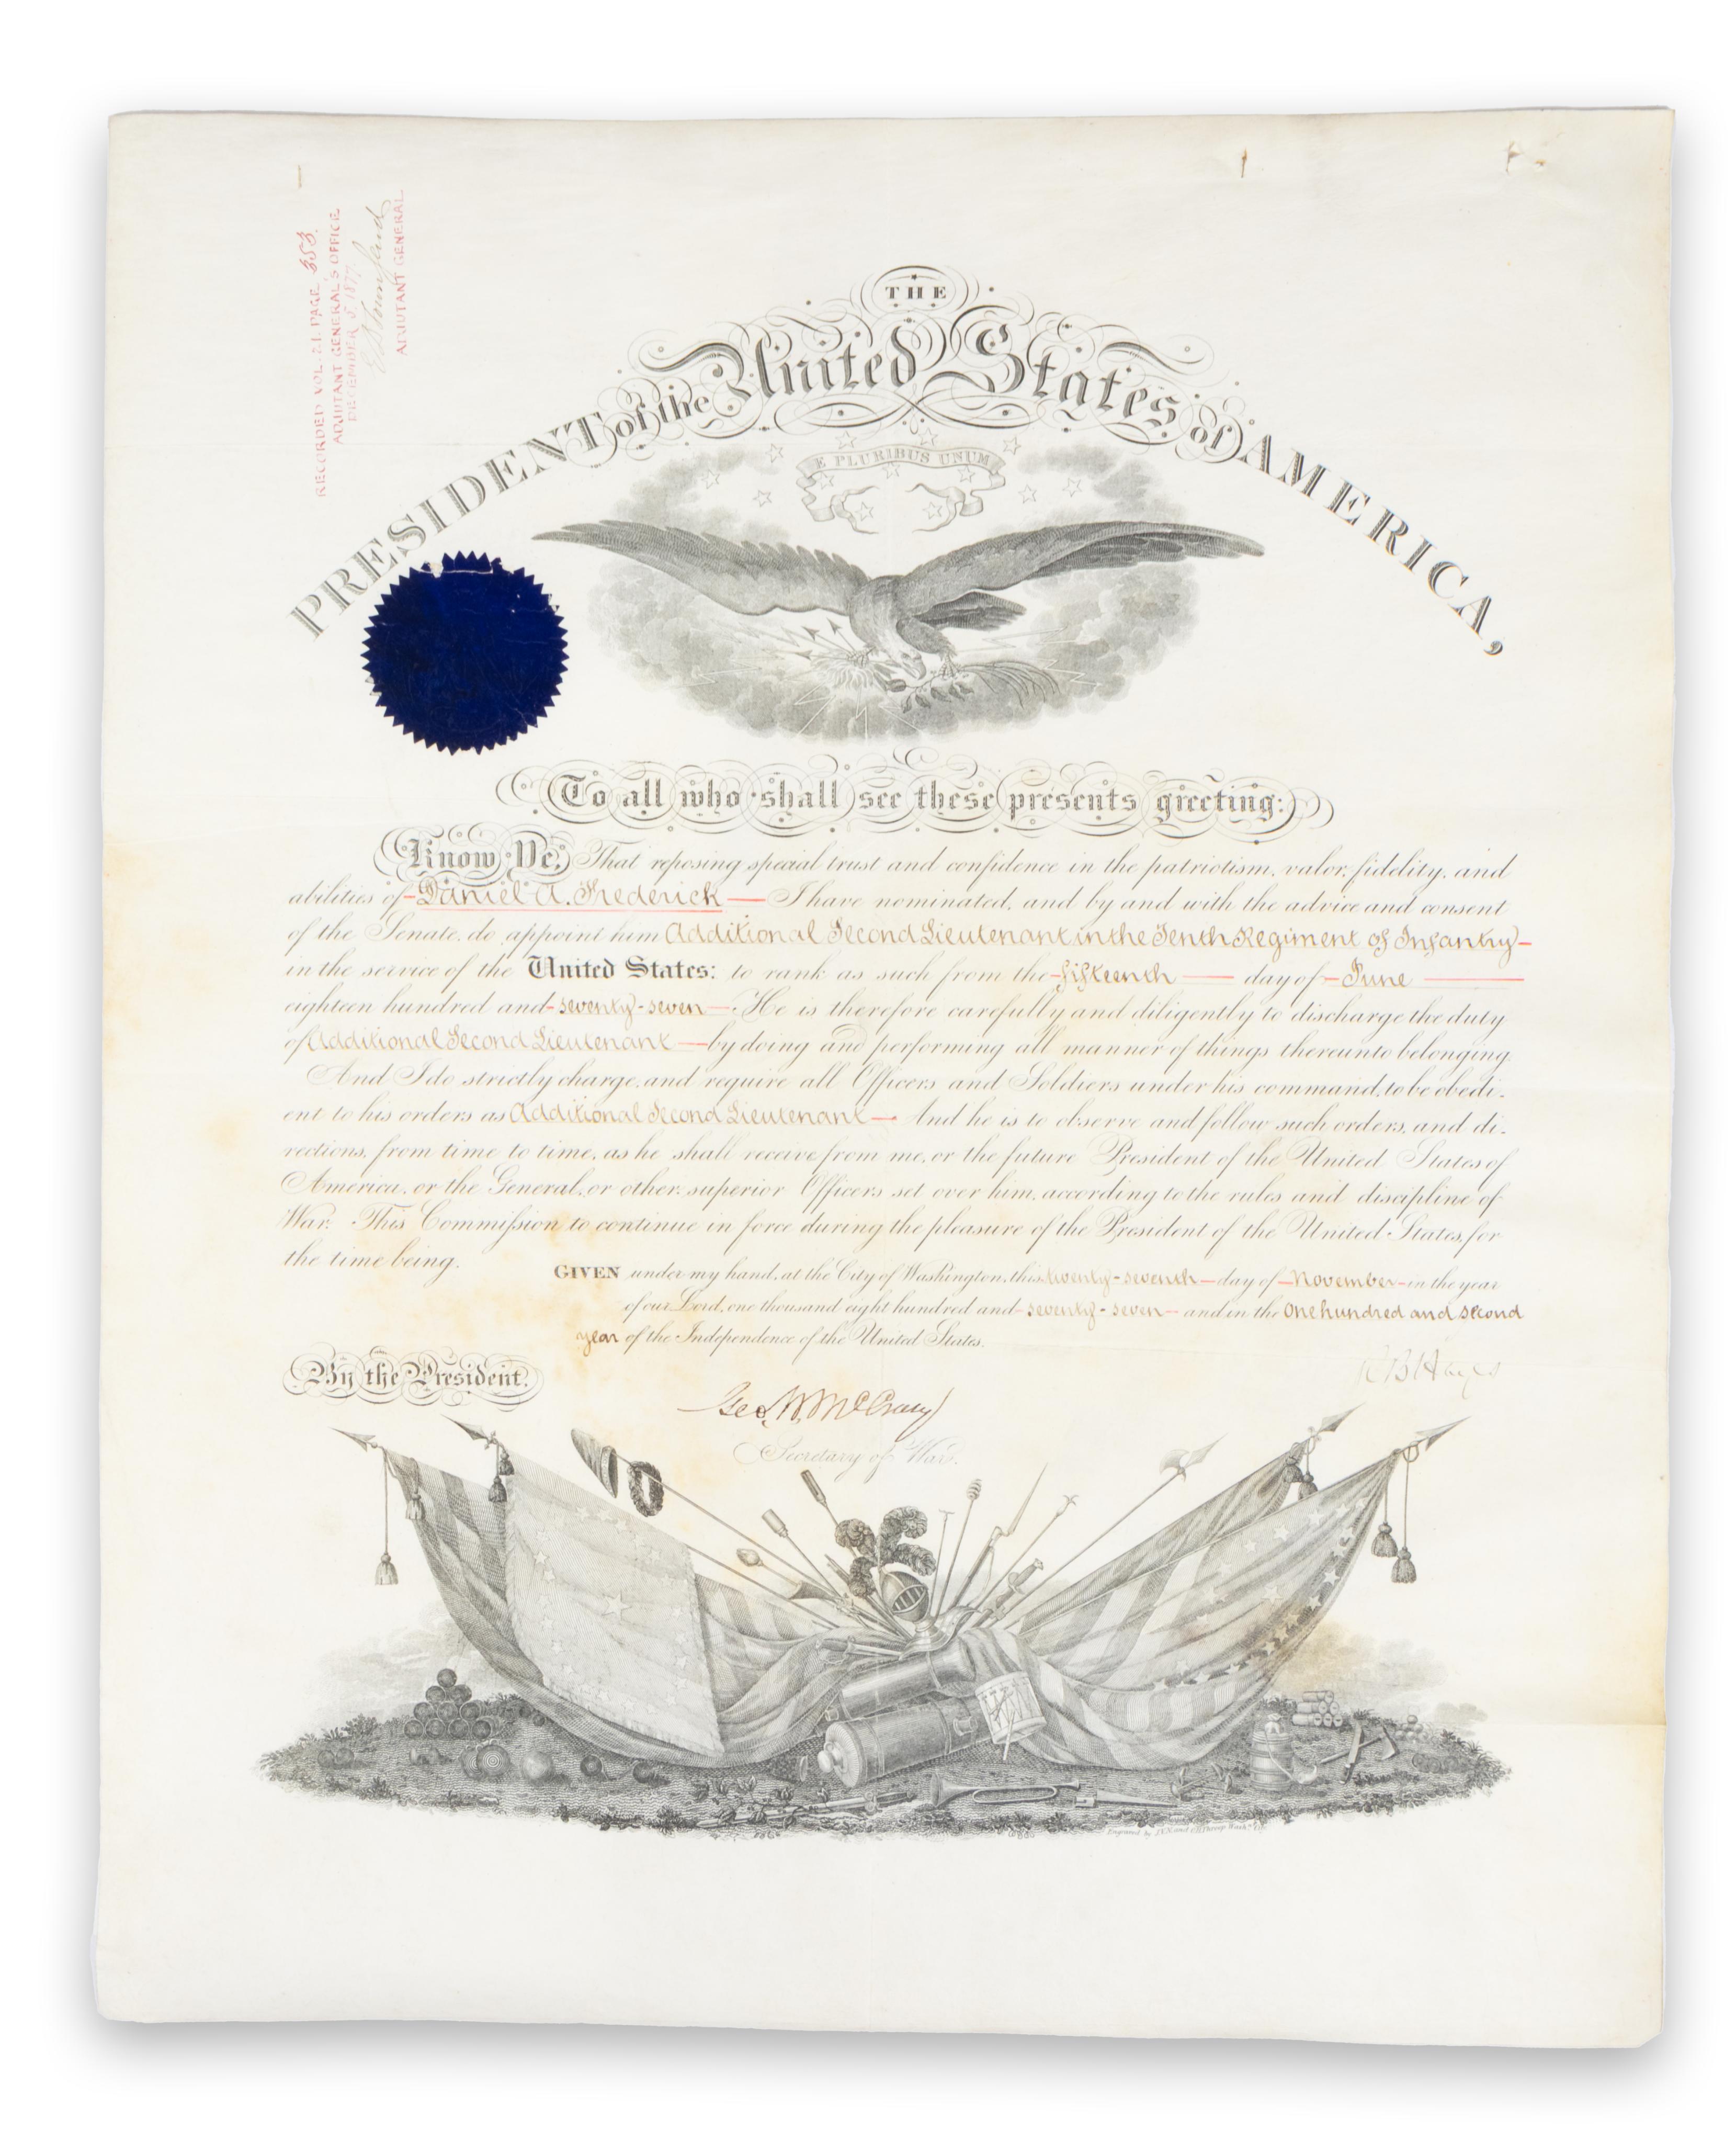 RECORDED VOL. 21. PAGE 353.
ADJUTANT GENERAL'S OFFICE
DECEMBER 5, 1877.
ADJUTANT GENERAL.
THE
PRESIDENT of the United States of AMERICA,
E PLURIBUS UNUM
To all who shall see these presents greeting:
Know Ye, That reposing special trust and confidence in the patriotism, valor, fidelity, and
abilities of Daniel A. Frederick I have nominated, and by and with the advice and consent
of the Senate, do appoint him Additional Second Lieutenant in the Tenth Regiment of Infantry
in the service of the United States: to rank as such from the fifteenth day of June
eighteen hundred and seventy-seven He is therefore carefully and diligently to discharge the duty
of Additional Second Lieutenant by doing and performing all manner of things thereunto belonging.
And I do strictly charge, and require all Officers and Soldiers under his command, to be obedi-
ent to his orders as Additional Second Lieutenant And he is to observe and follow such orders, and di-
rections, from time to time, as he shall receive from me, or the future President of the United States of
America, or the General, or other superior Officers set over him, according to the rules and discipline of
War. This Commission to continue in force during the pleasure of the President of the United States, for
the time being.
GIVEN under my hand, at the City of Washington, this twenty-seventh day of November in the year
of our Lord, one thousand eight hundred and seventy-seven and in the one hundred and second
year of the Independence of the United States.
R B Hayes
By the President.
Geo. W. McCrary
Secretary of War.
Engraved by